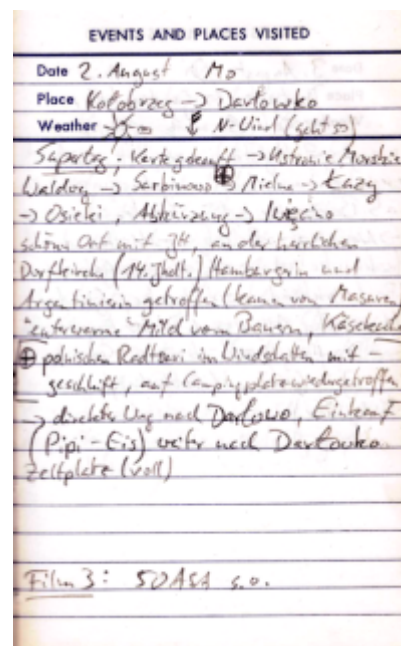 EVENTS AND PLACES VISITED
Date 2. August Mo
Place Kołobrzeg -> Darłowko
Weather N-Wind (geht so)
Supertag. Karte gekauft -> Ustronie Morskie
Waldweg -> Sarbinowo ⊕ -> Mielno -> Łazy
-> Osieki, Abkürzung -> Iwięcino
schöner Ort mit JH, an der herrlichen
Dorfkirche (14. Jhdt.) Hambergerin und
Argentinierin getroffen (kamen von Masuren)
"entwarme" Milch vom Bauern, Käsekuchen
⊕ polnischen Radtouri im Windschatten mit-
geschleift, auf Campingplatz wiedergetroffen
-> direkter Weg nach Darłowo, Einkauf
(Pipi-Eis) weiter nach Darłowko
Zeltplatz (voll)
Film 3: 50 ASA s.o.